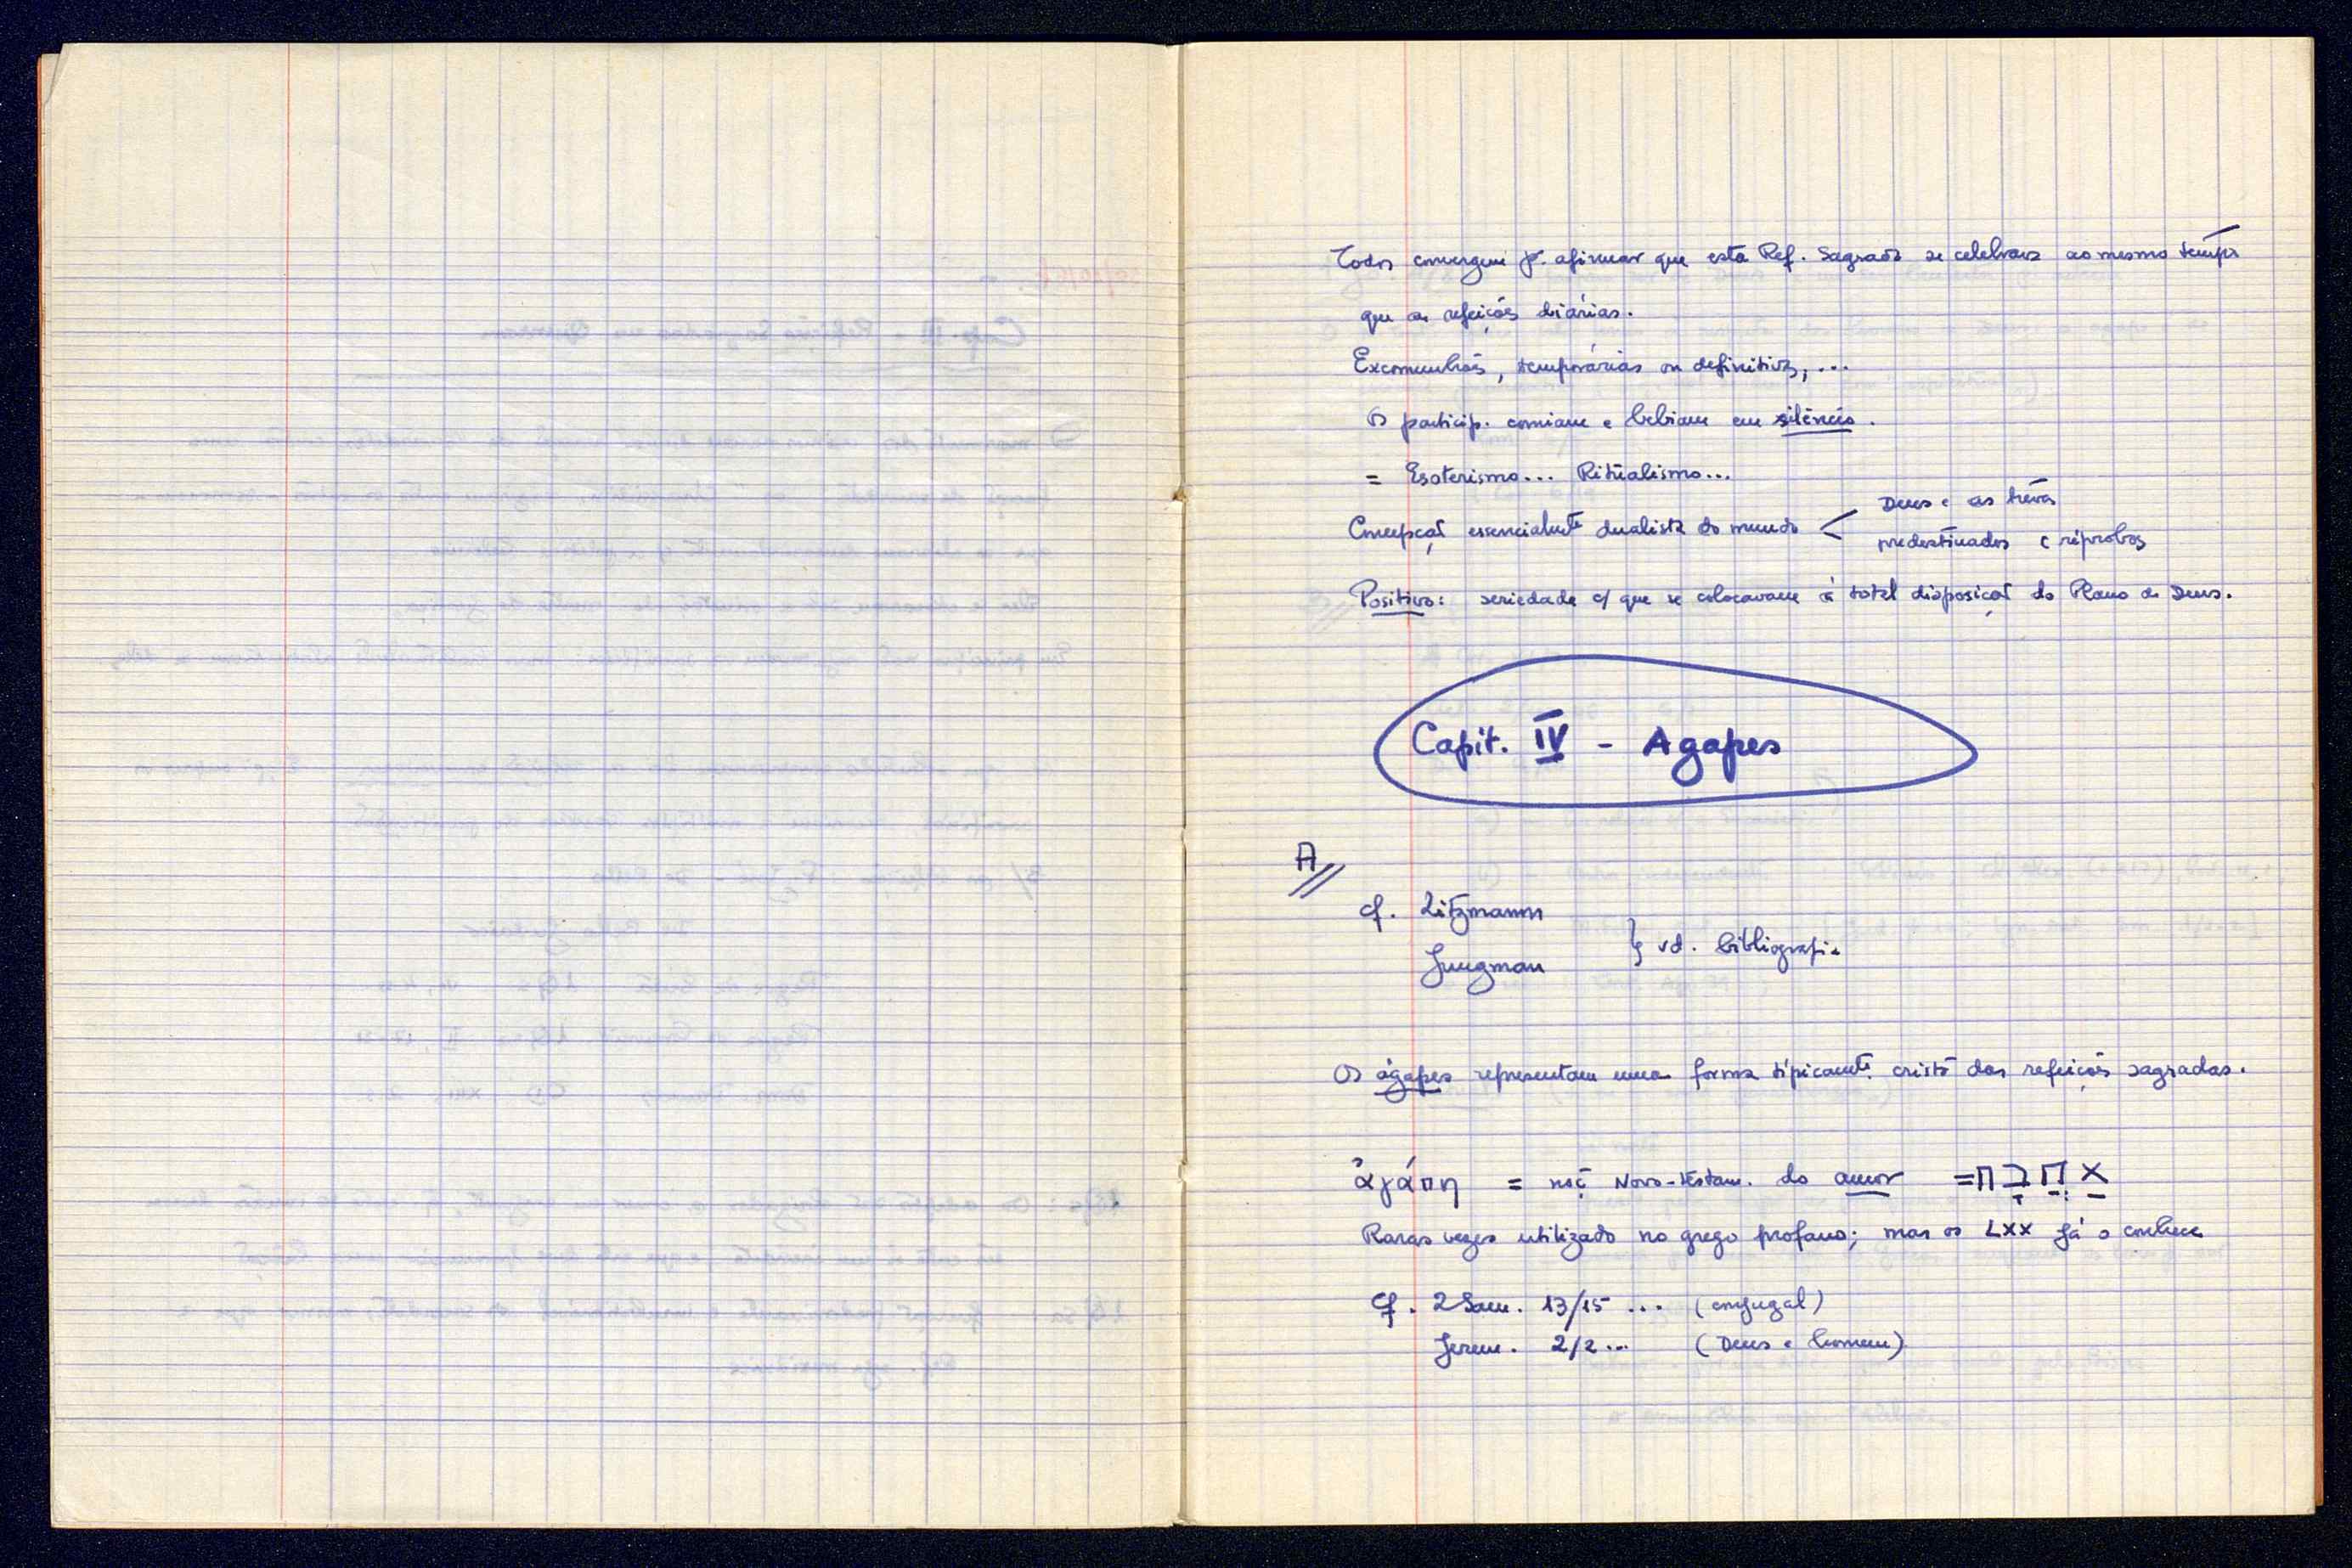 Todos convergem p. afirmar que esta Ref. Sagrada se celebrava ao mesmo tempo
que as refeições diárias.
Excomunhões, temporárias ou definitivas, ...
Os particip. comiam e bebiam em silêncio.
= Esoterismo... Ritualismo...
Concepção essencialmte dualista do mundo < Deus e as trevas
predestinados e réprobos
Positivo: seriedade c/ que se colocavam à total disposição do Plano de Deus.
Capit. IV - Agapes
A//
cf. Litzmann
Jungman } vd. bibliografia
Os ágapes representam uma forma tipicamte. cristã das refeições sagradas.
ἀγάπη = noç Novo-Testam. do amor = אַהֲבָה
Raras vezes utilizado no grego profano; mas os LXX já o conhece
Cf. 2 Sam. 13/15 ... (conjugal)
Jerem. 2/2... (Deus e homem)